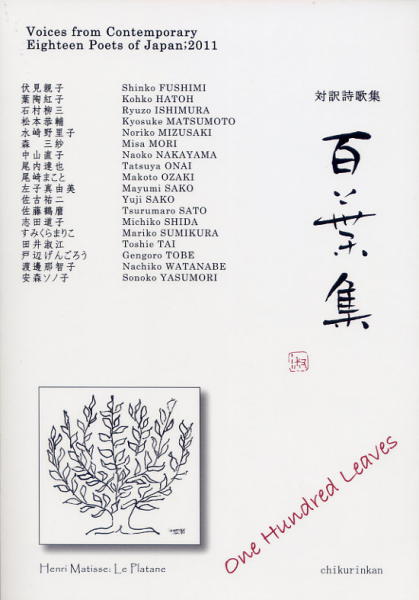 Voices from Contemporary
Eighteen Poets of Japan;2011
伏見親子 Shinko FUSHIMI
葉陶紅子 Kohko HATOH
石村柳三 Ryuzo ISHIMURA
松本恭輔 Kyosuke MATSUMOTO
水崎野里子 Noriko MIZUSAKI
森 三紗 Misa MORI
中山直子 Naoko NAKAYAMA
尾内達也 Tatsuya ONAI
尾崎まこと Makoto OZAKI
左子真由美 Mayumi SAKO
佐古祐二 Yuji SAKO
佐藤鶴麿 Tsurumaro SATO
志田道子 Michiko SHIDA
すみくらまりこ Mariko SUMIKURA
田井淑江 Toshie TAI
戸辺げんごろう Gengoro TOBE
渡邊那智子 Nachiko WATANABE
安森ソノ子 Sonoko YASUMORI
対訳詩歌集
百葉集
淑
One Hundred Leaves
Henri Matisse: Le Platane
chikurinkan